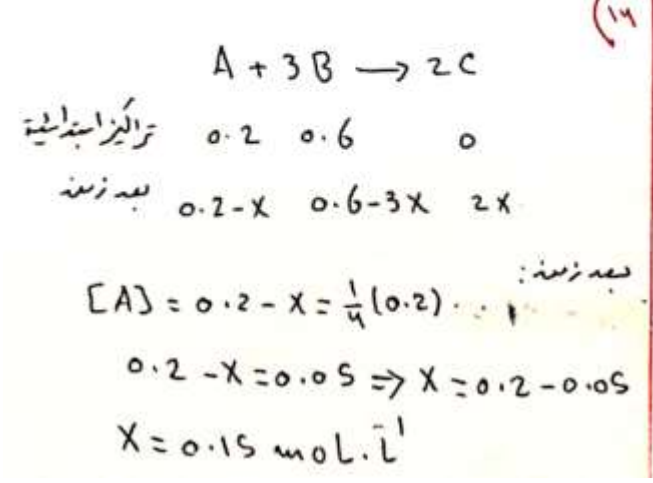 14
A + 3B → 2C
تراكيز ابتدائية 0.2 0.6 0
بعد زمن 0.2-X 0.6-3X 2X
بعد زمن:
[A] = 0.2 - X = 1/4 (0.2)
0.2 - X = 0.05 => X = 0.2 - 0.05
X = 0.15 moL.L⁻¹